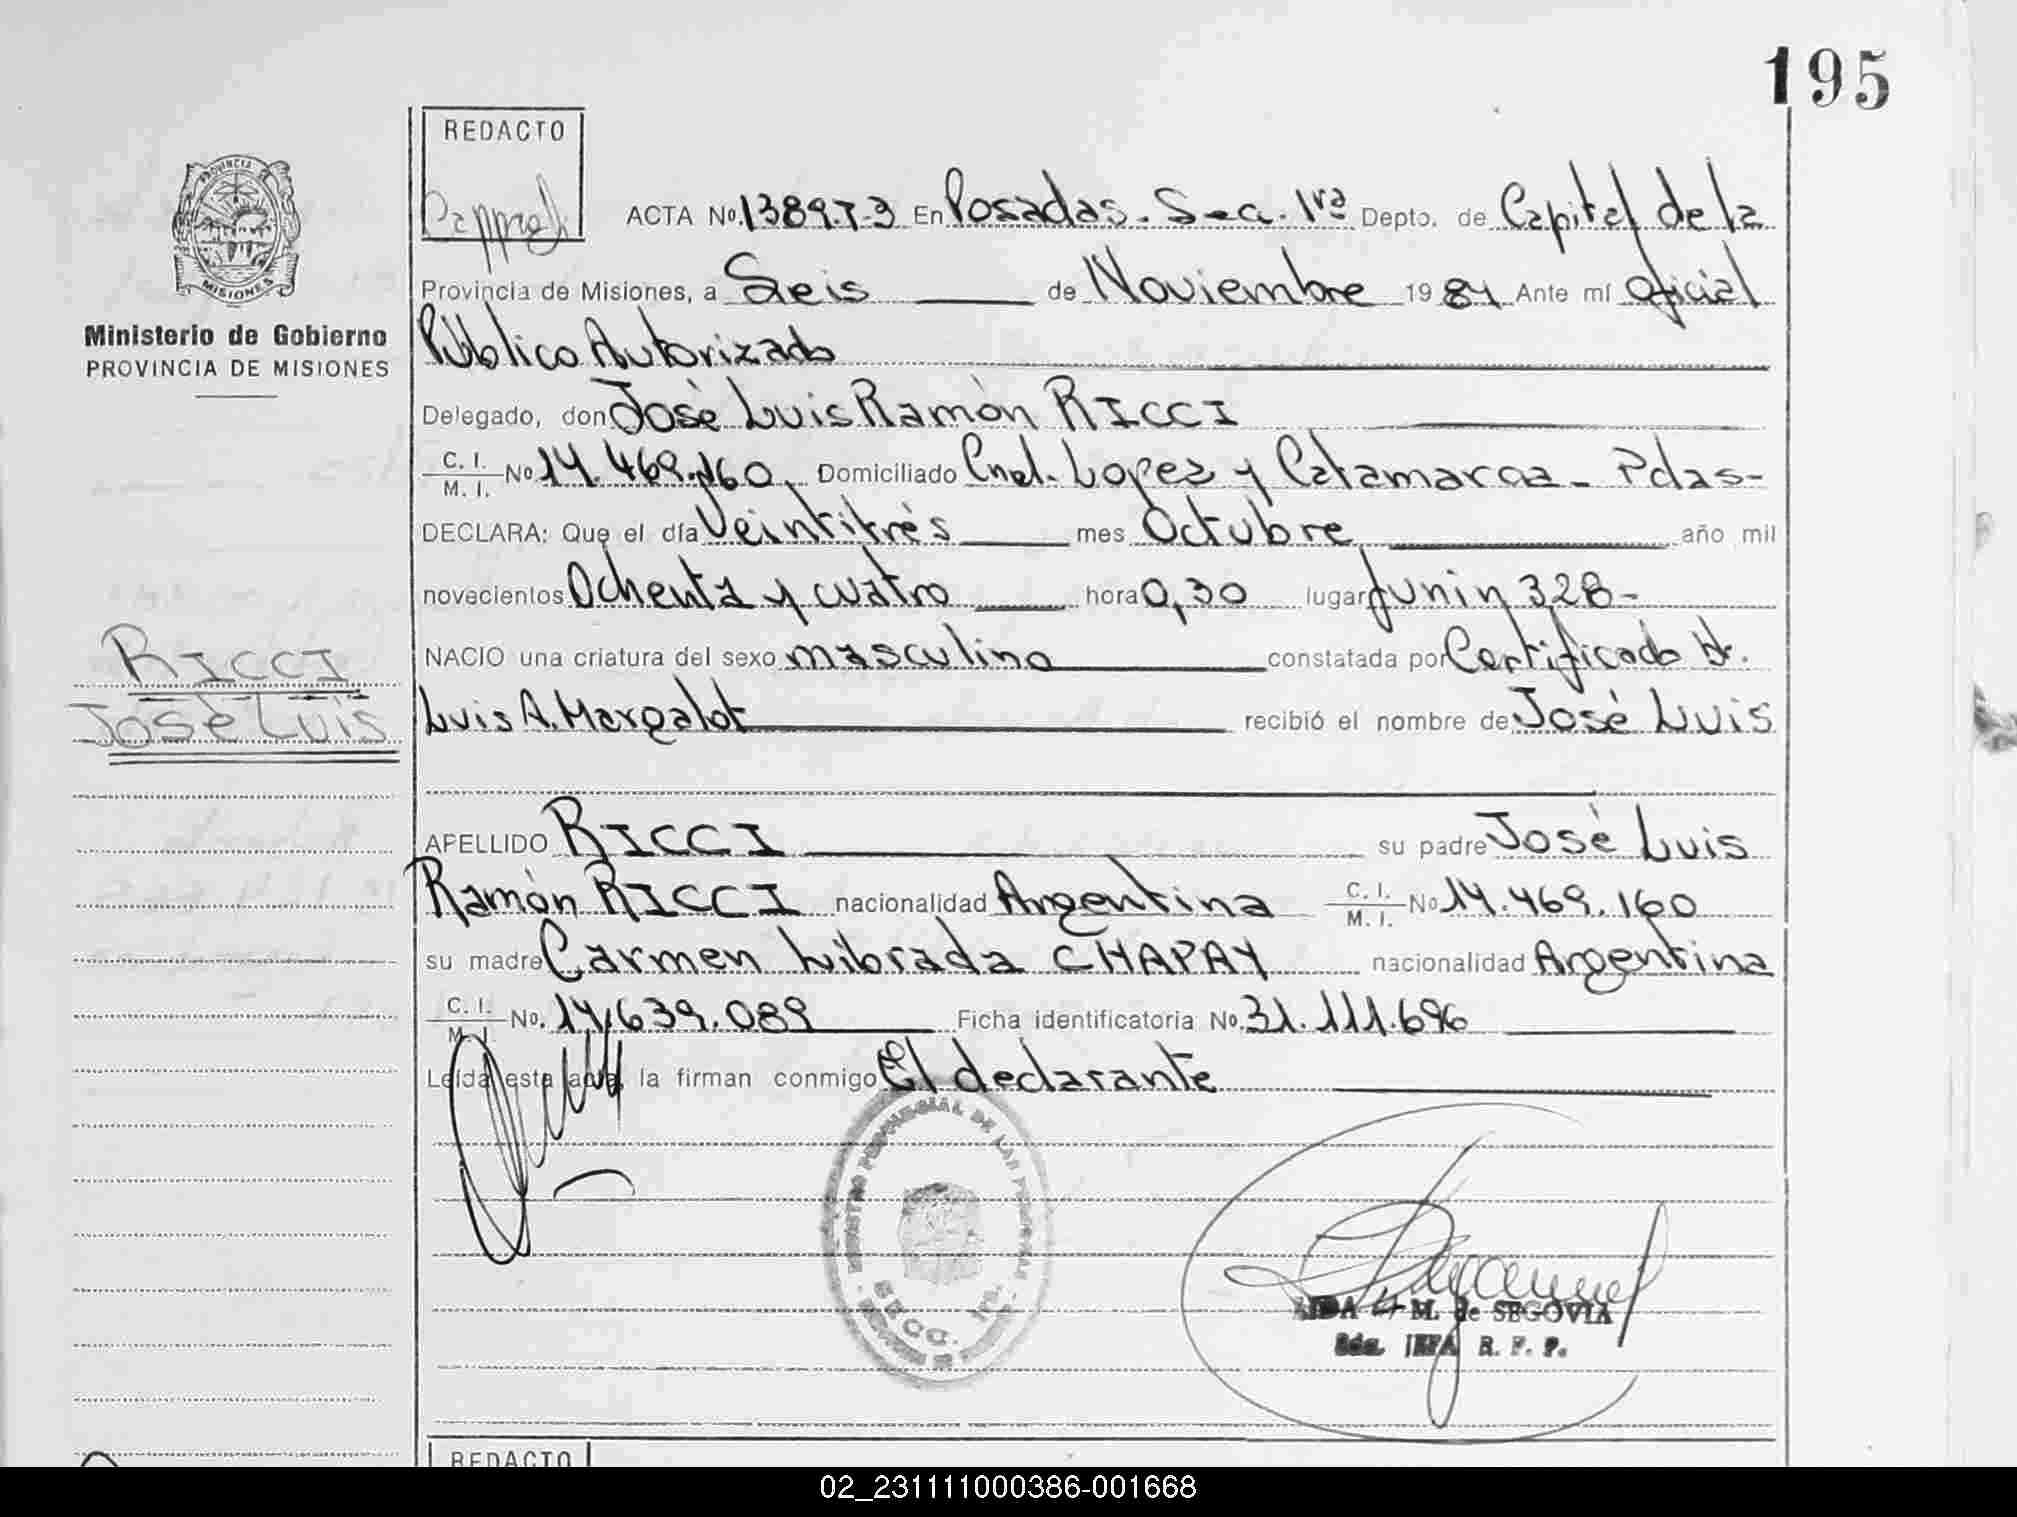 195
REDACTO
ACTA No. 1389.T-3 En Posadas. Sec. 1ra Depto. de Capital de la
PROVINCIA
MISIONES
Provincia de Misiones, a Seis de Noviembre 1984 Ante mí Oficial
Ministerio de Gobierno
PROVINCIA DE MISIONES
Público Autorizado
Delegado, don José Luis Ramón RICCI
C. I. M. I. No 14.469.160 Domiciliado Cnel. Lopez y Catamarca - Pdas-
DECLARA: Que el día Veintitrés mes Octubre año mil
novecientos Ochenta y cuatro hora 0,30 lugar Junin 328-
RICCI
José Luis
NACIO una criatura del sexo masculino constatada por Certificado Dr.
Luis A. Margalot recibió el nombre de José Luis
APELLIDO RICCI su padre José Luis
Ramón RICCI nacionalidad Argentina C. I. M. I. No 14.469.160
su madre Carmen Librada CHAPAY nacionalidad Argentina
C. I. M. I. No. 14.639.089 Ficha identificatoria No. 31.111.696
Leída esta acta, la firman conmigo El declarante
REGISTRO PROVINCIAL DE LAS PERSONAS
SECC. 1ra.
AIDA M. de SEGOVIA
R. P. P.
REDACTO
02_231111000386-001668